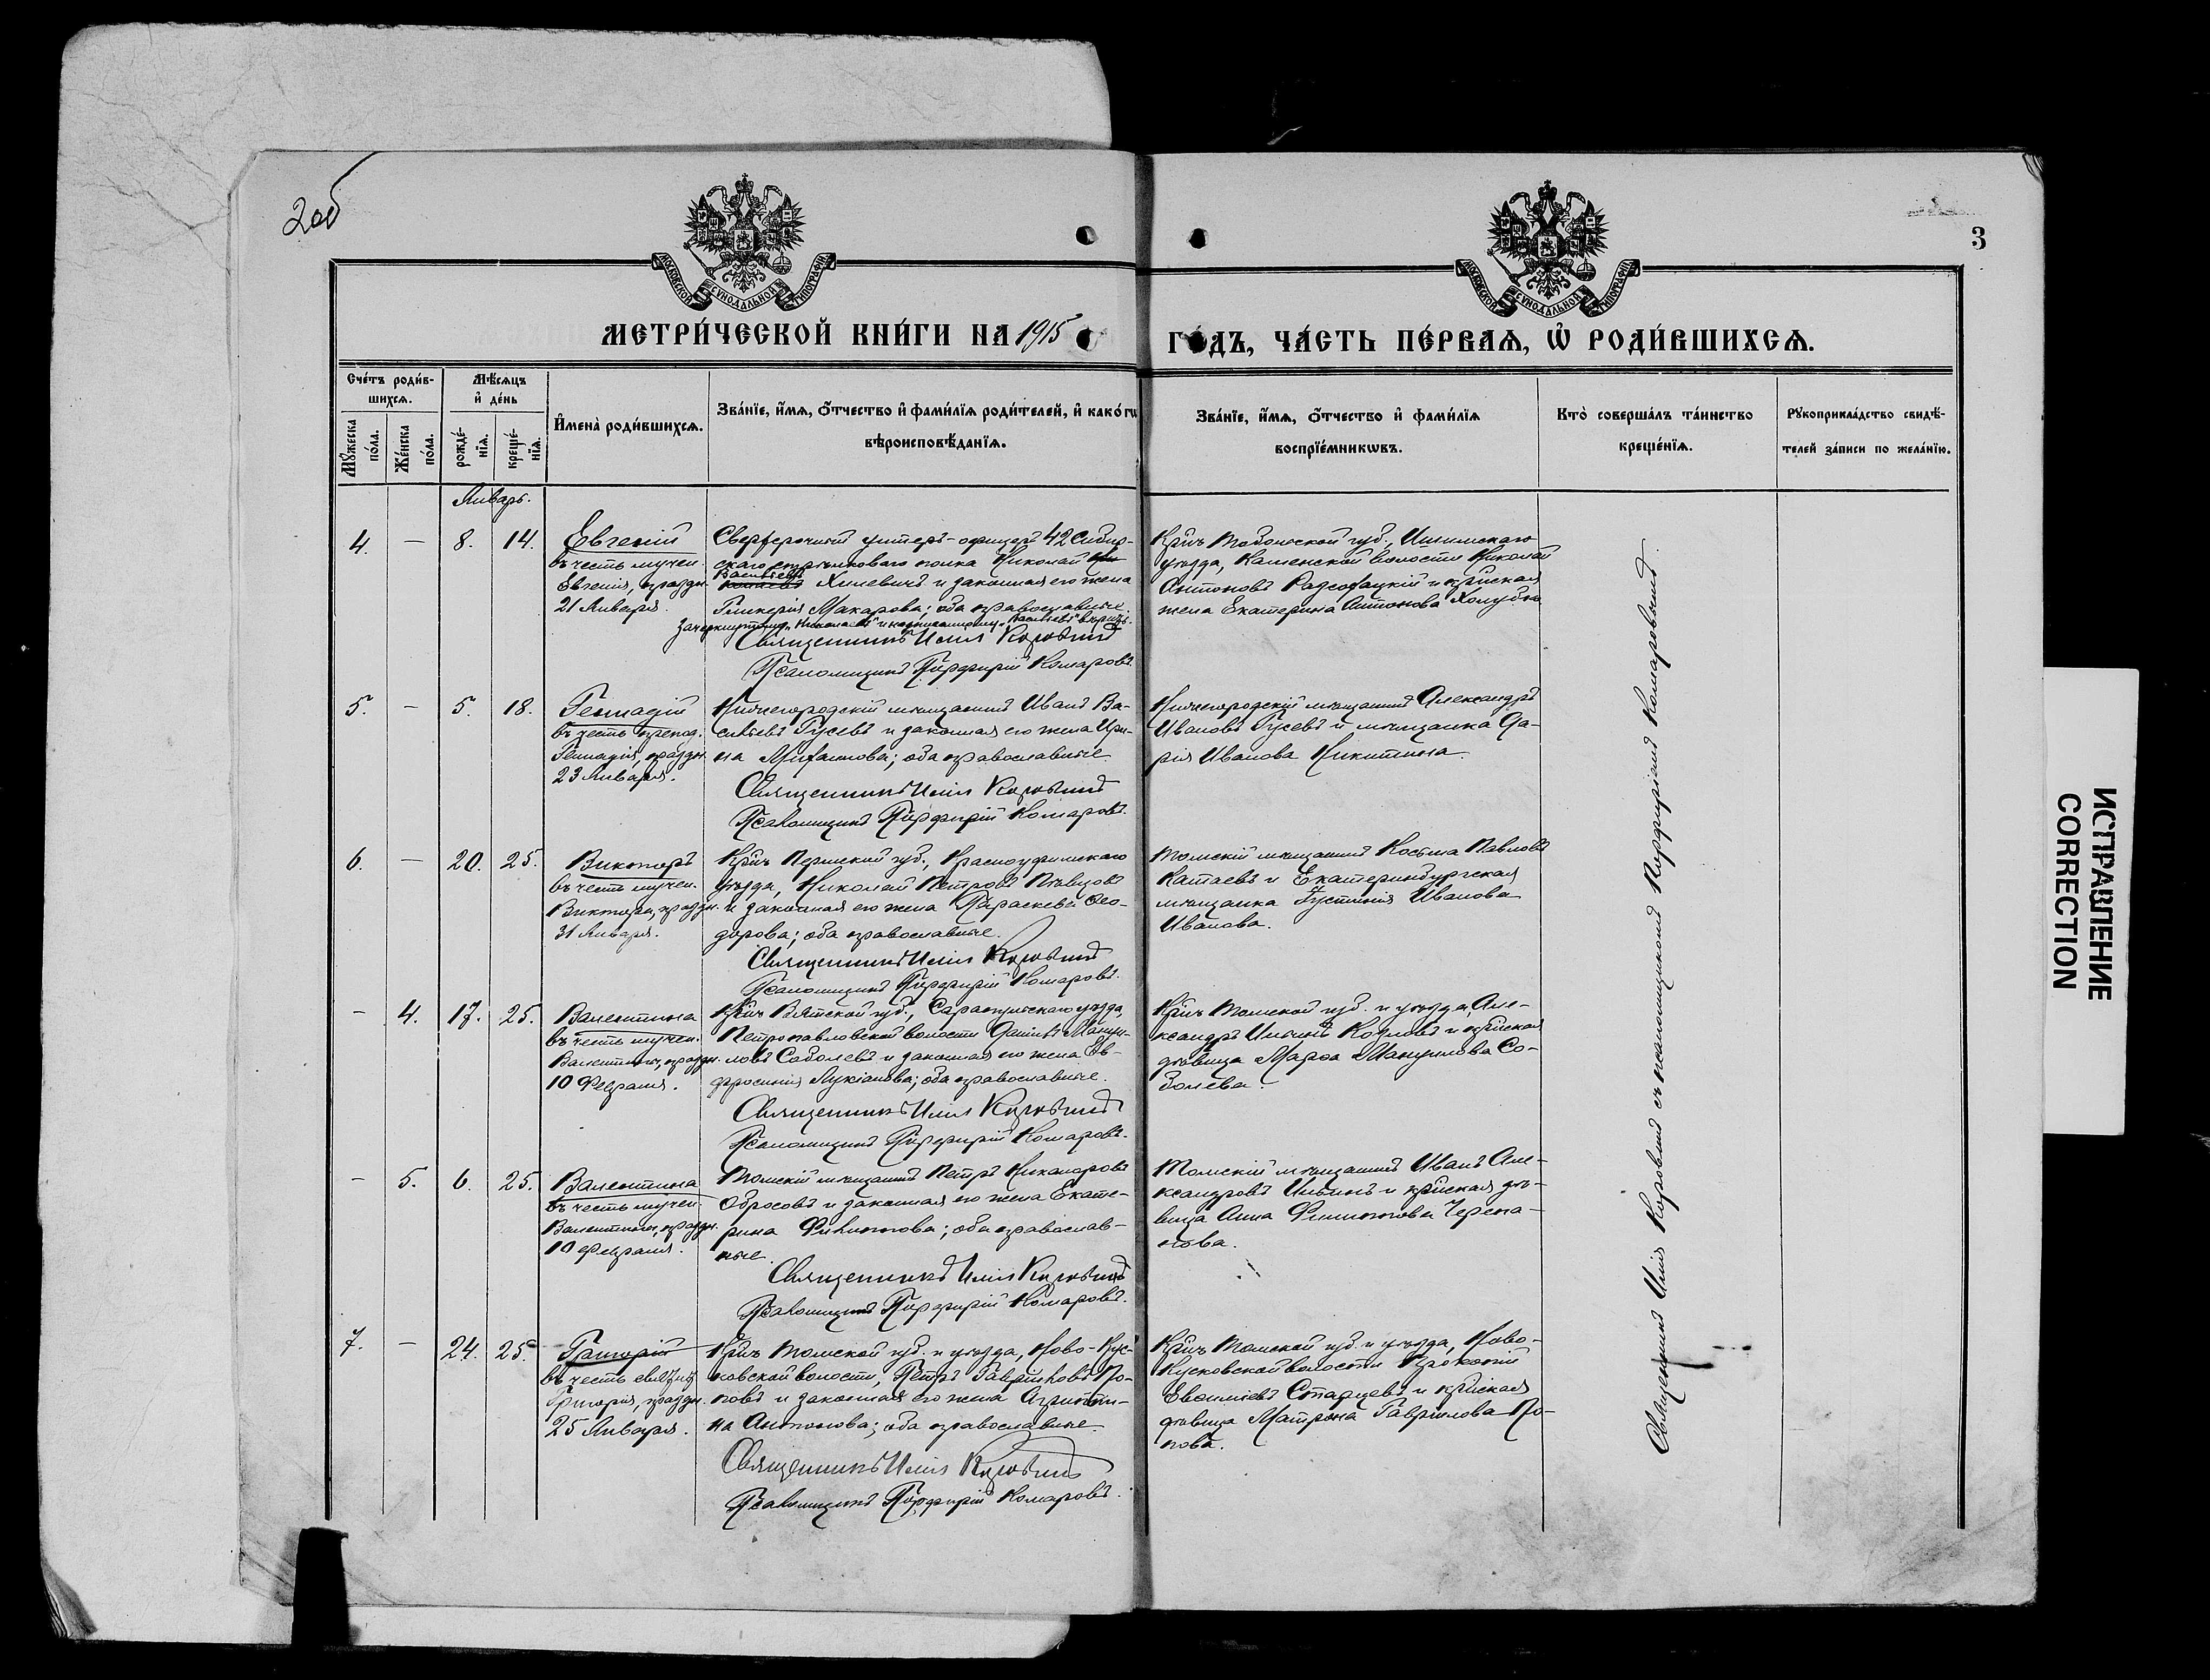 2об
3
МОСКОВСКОЙ СѴНОДАЛЬНОЙ ТИПОГРАФІИ
МОСКОВСКОЙ СѴНОДАЛЬНОЙ ТИПОГРАФІИ
МЕТРИ́ЧЕСКОЙ КНИ́ГИ НА 1915
ГО́ДЪ, ЧА́СТЬ ПЕ́РВАѦ, Ѡ҆ РОДИ́ВШИХСѦ.
Сче́тъ роди́в-
шихсѧ.
Мꙋ́жеска по́ла.
Же́нска по́ла.
Мѣ́сѧцъ
и҆ де́нь
рожде́-
нїѧ.
креще́-
нїѧ.
И҆мена̀ роди́вшихсѧ.
Зва́нїе, и҆́мѧ, ѻ҆́тчество и҆ фами́лїѧ роди́телей, и҆ како́гѡ
вѣроисповѣ́данїѧ.
Зва́нїе, и҆́мѧ, ѻ҆́тчество и҆ фами́лїѧ
воспрїе́мникѡвъ.
Кто̀ соверша́лъ та́инство
креще́нїѧ.
Рꙋкоприкла́дство свидѣ́-
телей за́писи по жела́нїю.
Январь.
4. — 8. 14.
Евгеній
въ честь мучен.
Евгенія, праздн.
21 Января.
Сверхсрочный унтеръ-офицеръ 42 Сибир-
скаго стрѣлковаго полка Николай
Васильевъ Хилевичъ и законная его жена
Гликерія Макарова; оба православные.
Зачеркнутому „Николаевъ" и надписанному „Васильевъ" вѣрить.
Священникъ Илія Коровинъ
Псаломщикъ Порфирій Комаровъ.
Кр̃нъ Тобольской губ., Ишимскаго
уѣзда, Каменской волости Николай
Антоновъ и кр̃нская
жена Екатерина Антонова
5. — 5. 18.
Геннадій
въ честь препод.
Геннадія, праздн.
23 Января.
Нижегородскій мѣщанинъ Иванъ Ва-
сильевъ Гусевъ и законная его жена Ири-
на Михаилова; оба православные
Священникъ Илія Коровинъ
Псаломщикъ Порфирій Комаровъ.
Нижегородскій мѣщанинъ Александръ
Ивановъ Гусевъ и мѣщанка Да-
рія Иванова Никитина.
6. — 20. 25.
Викторъ
въ честь мучен.
Виктора, праздн.
31 Января.
Кр̃нъ Пермской губ., Красноуфимскаго
уѣзда, Николай Петровъ Пѣвцовъ
и законная его жена Параскева Ѳео-
дорова; оба православные.
Священникъ Илія Коровинъ
Псаломщикъ Порфирій Комаровъ.
Томскій мѣщанинъ Косьма Павловъ
Катаевъ и Екатеринбургская
мѣщанка Іустинія Иванова
Иванова.
— 4. 17. 25.
Валентина
въ честь мучен.
Валентины, праздн.
10 Февраля.
Кр̃нъ Вятской губ., Сарапульскаго уѣзда,
Петропавловской волости Даніилъ Мануи-
ловъ Соболевъ и законная его жена Ев-
фросинія Лукіанова; оба православные.
Священникъ Илія Коровинъ
Псаломщикъ Порфирій Комаровъ.
Кр̃нъ Томской губ. и уѣзда, Але-
ксандръ Ильинъ Козловъ и кр̃нская
дѣвица Марѳа Мануилова Со-
болева.
— 5. 6. 25.
Валентина
въ честь мучен.
Валентины, праздн.
10 Февраля.
Томскій мѣщанинъ Петръ Никаноровъ
Обросовъ и законная его жена Екате-
рина Филиппова; оба православ-
ные.
Священникъ Илія Коровинъ
Псаломщикъ Порфирій Комаровъ.
Томскій мѣщанинъ Иванъ Але-
ксандровъ Ильинъ и кр̃нская дѣ-
вица Анна Филиппова Черепа-
нова.
7. — 24. 25.
Григорій
въ честь святит.
Григорія, праздн.
25 Января.
Кр̃нъ Томской губ. и уѣзда, Ново-Кус-
ковской волости, Петръ Гавриловъ По-
повъ и законная его жена Агриппи-
на Антонова; оба православные.
Священникъ Илія Коровинъ
Псаломщикъ Порфирій Комаровъ.
Кр̃нъ Томской губ. и уѣзда, Ново-
Кусковской волости Прокопій
Старцевъ и кр̃нская
дѣвица Матрона Гаврилова По-
пова.
Священникъ Илія Коровинъ съ псаломщикомъ Порфиріемъ Комаровымъ.
ИСПРАВЛЕНИЕ
CORRECTION